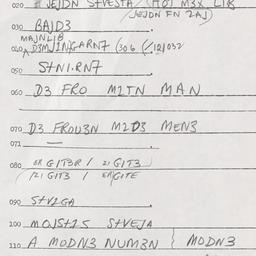 020 JEJDN STVESTA / (HOJ M3X LIB
(JEJDN FN 2AJ)
030 BAJD3
MAJNLIB
040 D3MJ1NGARN7 (30 6 (/ 12) 032
050 STN1.RN7
060 D3 FRO M2TN MAN
070 D3 FROU3N M2D3 MEN3
071 —
080 ER GIT3R / 21 GIT3
/21 GIT3 / ER/GITE
090 STV2GA
100 MOJST2S STVEJA
110 A MODN3 NUM3N } MODN3